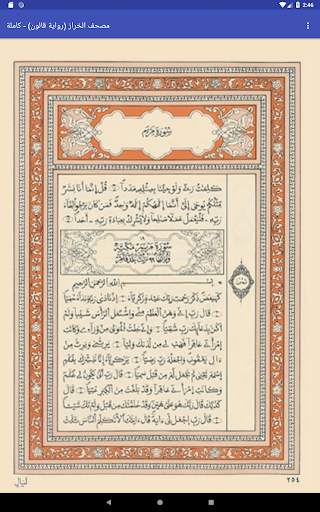 2:46
مصحف الخراز (رواية قالون) - كاملة
سورة مريم
كلمت ربي ولو جئنا بمثله مددا قل إنما أنا بشر
مثلكم يوحى إلي أنما إلهكم إله واحد فمن كان يرجوا لقاء
ربه فليعمل عملا صلحا ولا يشرك بعبادة ربه أحدا
سورة مريم مكية
بسم الله الرحمن الرحيم
كهيعص ذكر رحمت ربك عبده زكرياء إذ نادى ربه نداء خفيا
قال رب إني وهن العظم مني واشتعل الرأس شيبا ولم
أكن بدعائك رب شقيا وإني خفت الموالي من وراءي وكانت
إمرأتي عاقرا فهب لي من لدنك وليا يرثني ويرث من
ءال يعقوب واجعله رب رضيا يزكرياء إنا نبشرك بغلم
إسمه يحيى لم نجعل له من قبل سميا قال رب أنى يكون لي غلم
وكانت إمرأتي عاقرا وقد بلغت من الكبر عتيا قال
كذلك قال ربك هو علي هين وقد خلقتك من قبل ولم تك شيئا
قال رب اجعل لي ءاية قال ءايتك ألا تكلم الناس ثلث
ليال
٢٥٤